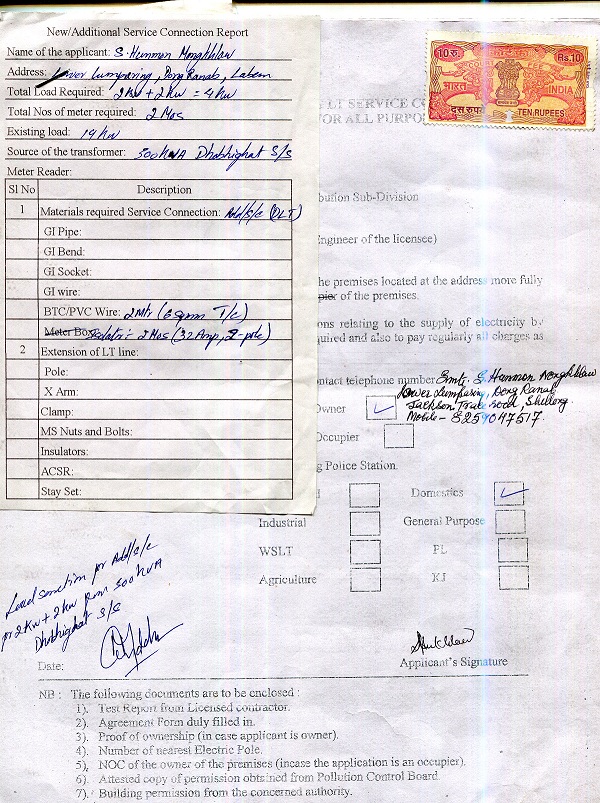 New/Additional Service Connection Report
Name of the applicant: S. Hunmon Nongkhlaw
Address: Lower Lumparing, Dong Ranab, Laban
Total Load Required: 2Kw + 2Kw = 4Kw
Total Nos of meter required: 2 Nos
Existing load: 19 Kw
Source of the transformer: 500 KVA Dhobhighat S/S
Meter Reader:
Sl No Description
1 Materials required Service Connection: Add/S/C (OLT)
GI Pipe:
GI Bend:
GI Socket:
GI wire:
BTC/PVC Wire: 2 Mtr (6 sqmm T/C)
Meter Box: Isolatr:- 2 Nos (32 Amp, 2-pole)
2 Extension of LT line:
Pole:
X Arm:
Clamp:
MS Nuts and Bolts:
Insulators:
ACSR:
Stay Set:
10 रु. Rs.10
भारत INDIA
दस रुपये TEN RUPEES
LT SERVICE CO
FOR ALL PURPO
bution Sub-Division
Engineer of the licensee)
he premises located at the address more fully
pier of the premises.
ons relating to the supply of electricity by
quired and also to pay regularly all charges as
ontact telephone number Smti. S. Hunmon Nongkhlaw
Lower Lumparing, Dong Ranab
Jackson Trace Road, Shillong
Mobile - 8259047517
Owner
Occupier
g Police Station.
Domestics
Industrial General Purpose
WSLT PL
Agriculture KJ
Load sanction for Add/S/C
for 2Kw + 2Kw from 500 KVA
Dhobhighat S/S
Date:
Applicant's Signature
NB : The following documents are to be enclosed :
1). Test Report from Licensed contractor.
2). Agreement Form duly filled in.
3). Proof of ownership (in case applicant is owner).
4). Number of nearest Electric Pole.
5). NOC of the owner of the premises (incase the application is an occupier).
6). Attested copy of permission obtained from Pollution Control Board.
7). Building permission from the concerned authority.